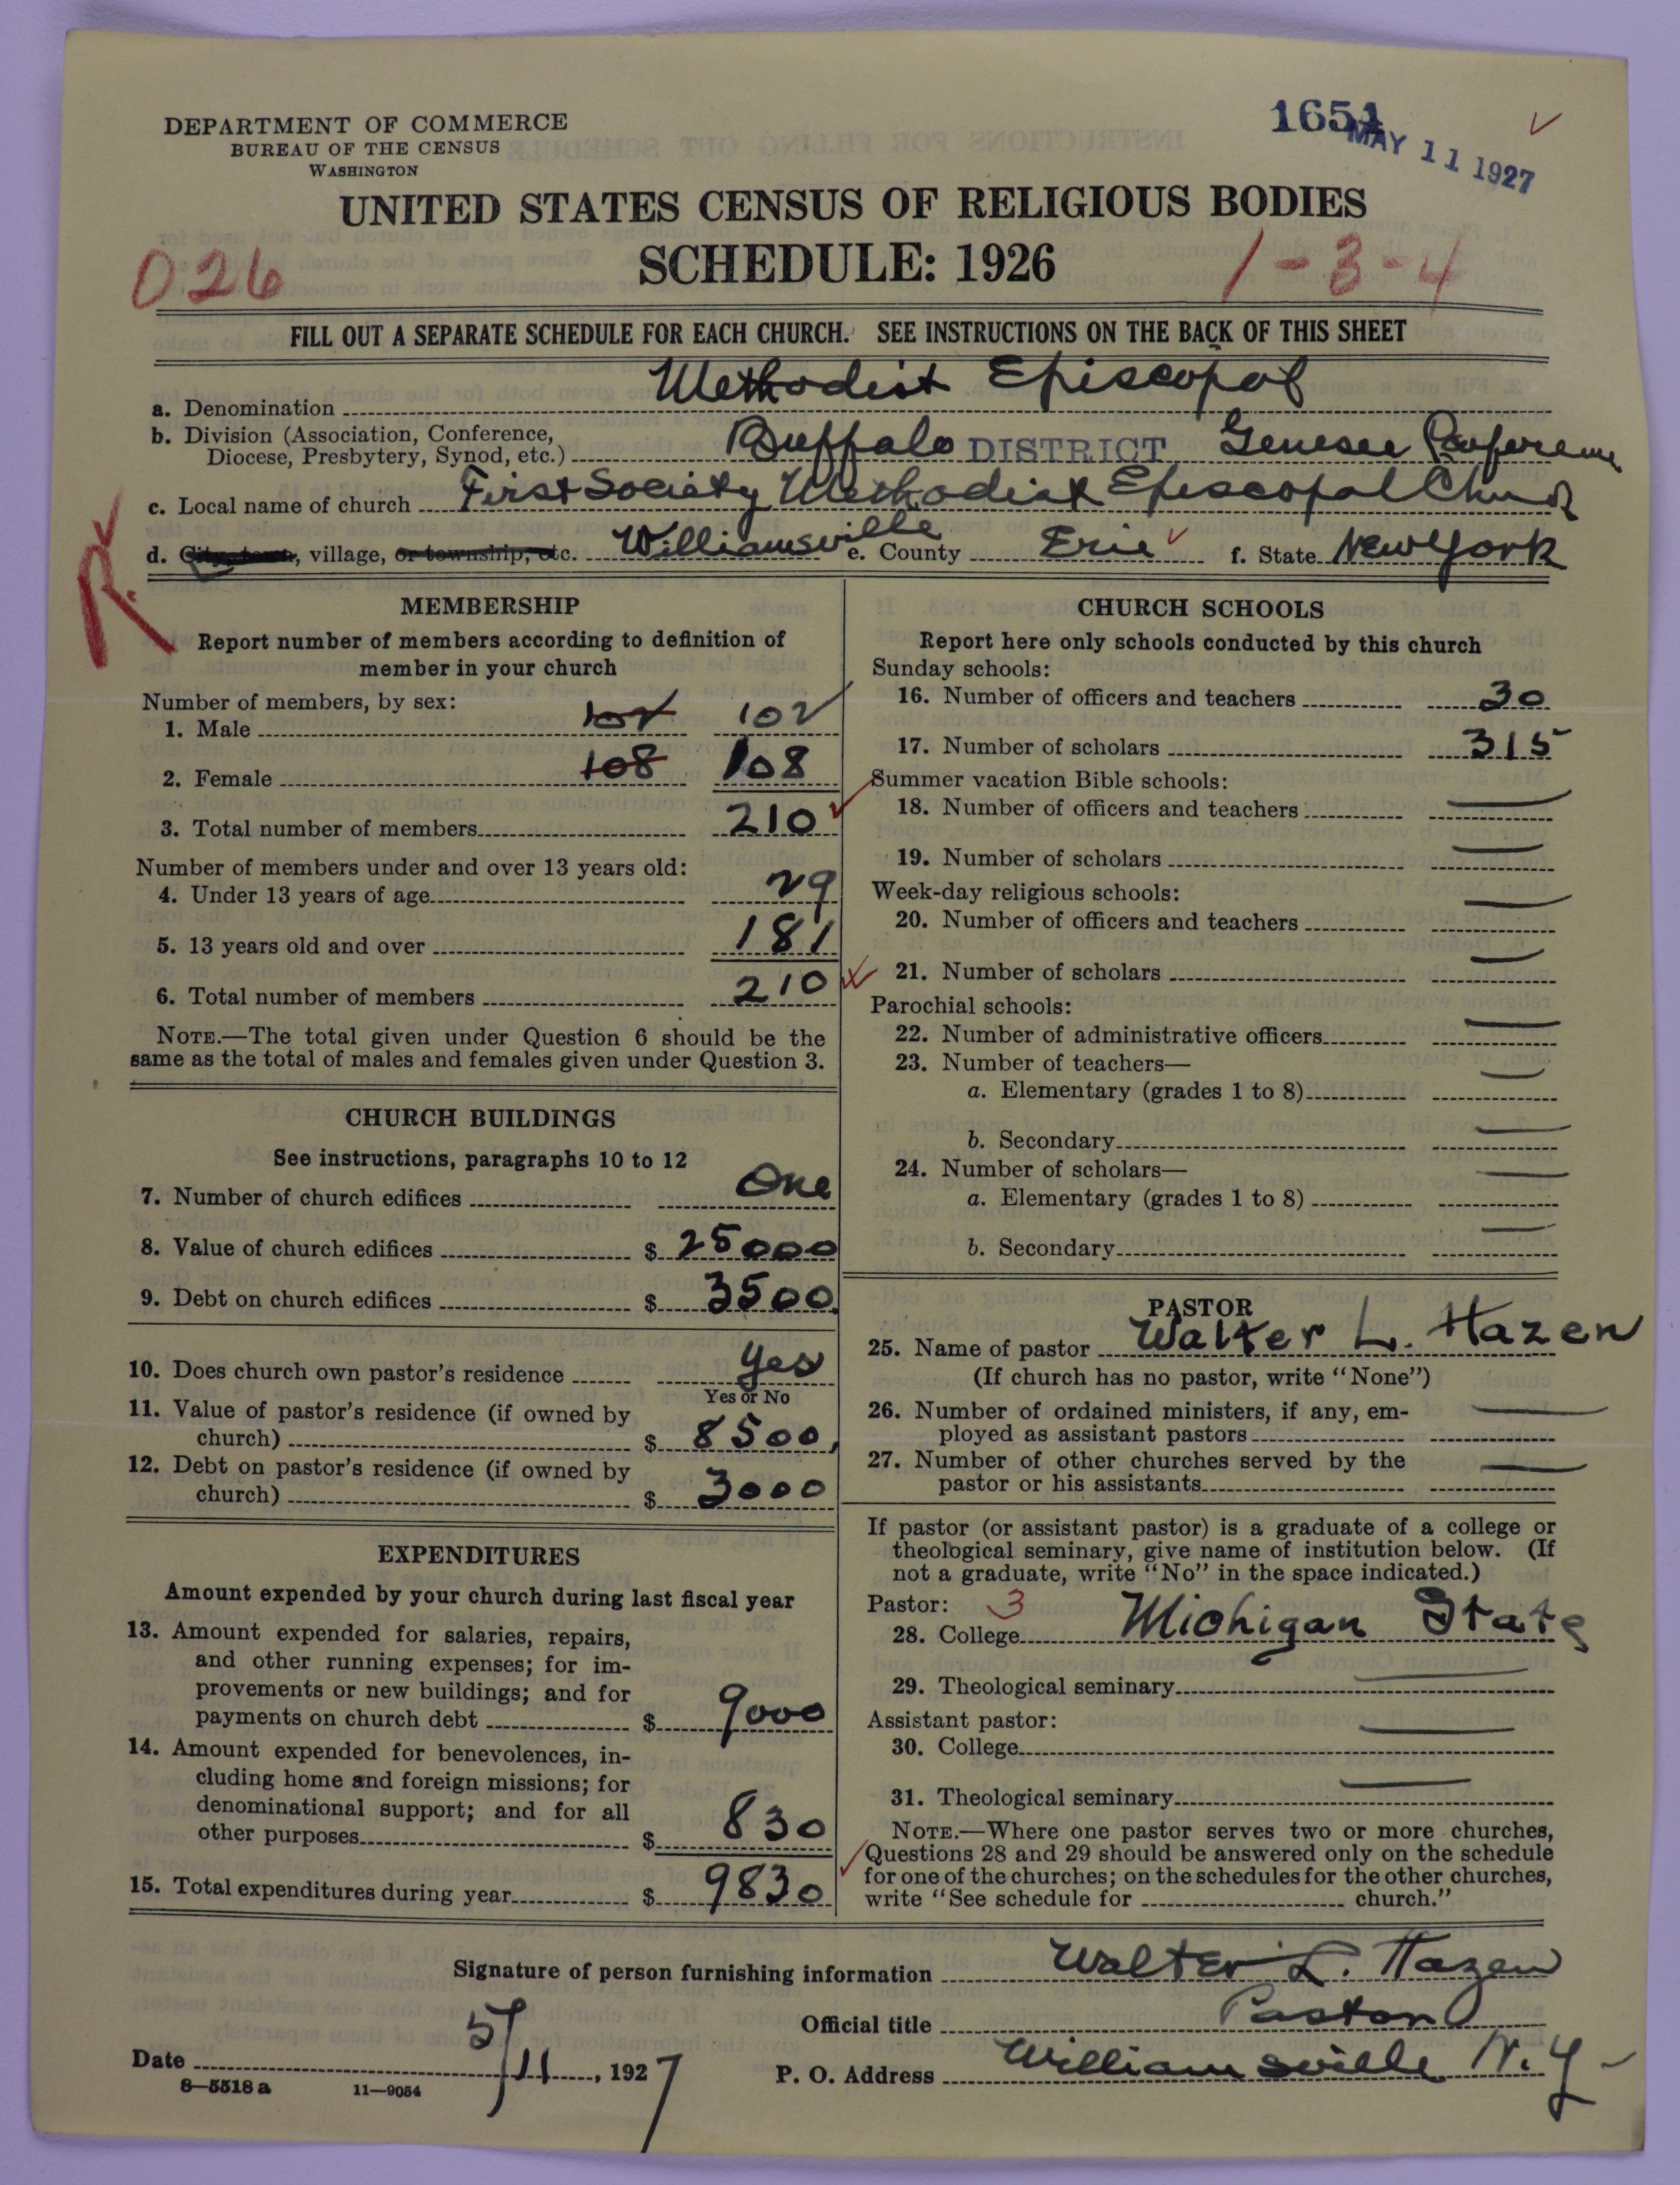 DEPARTMENT OF COMMERCE
BUREAU OF THE CENSUS
WASHINGTON
1651
MAY 11 1927
UNITED STATES CENSUS OF RELIGIOUS BODIES
SCHEDULE: 1926
026
1-3-4
FILL OUT A SEPARATE SCHEDULE FOR EACH CHURCH. SEE INSTRUCTIONS ON THE BACK OF THIS SHEET
a. Denomination Methodist Episcopal
b. Division (Association, Conference,
Diocese, Presbytery, Synod, etc.) Buffalo DISTRICT Genesee Conference
c. Local name of church First Society Methodist Episcopal Church
d. City, town, village, or township, etc. Williamsville e. County Erie f. State New York
R
MEMBERSHIP
Report number of members according to definition of
member in your church
Number of members, by sex:
1. Male 102 102
2. Female 108 108
3. Total number of members 210
Number of members under and over 13 years old:
4. Under 13 years of age 29
5. 13 years old and over 181
6. Total number of members 210
NOTE.—The total given under Question 6 should be the
same as the total of males and females given under Question 3.
CHURCH BUILDINGS
See instructions, paragraphs 10 to 12
7. Number of church edifices One
8. Value of church edifices $ 25000
9. Debt on church edifices $ 3500
10. Does church own pastor's residence Yes
Yes or No
11. Value of pastor's residence (if owned by
church) $ 8500
12. Debt on pastor's residence (if owned by
church) $ 3000
EXPENDITURES
Amount expended by your church during last fiscal year
13. Amount expended for salaries, repairs,
and other running expenses; for im-
provements or new buildings; and for
payments on church debt $ 9000
14. Amount expended for benevolences, in-
cluding home and foreign missions; for
denominational support; and for all
other purposes $ 830
15. Total expenditures during year $ 9830
CHURCH SCHOOLS
Report here only schools conducted by this church
Sunday schools:
16. Number of officers and teachers 30
17. Number of scholars 315
Summer vacation Bible schools:
18. Number of officers and teachers —
19. Number of scholars —
Week-day religious schools:
20. Number of officers and teachers —
21. Number of scholars —
Parochial schools:
22. Number of administrative officers —
23. Number of teachers—
a. Elementary (grades 1 to 8) —
b. Secondary —
24. Number of scholars—
a. Elementary (grades 1 to 8) —
b. Secondary —
PASTOR
25. Name of pastor Walter L. Hazen
(If church has no pastor, write "None")
26. Number of ordained ministers, if any, em-
ployed as assistant pastors —
27. Number of other churches served by the
pastor or his assistants —
If pastor (or assistant pastor) is a graduate of a college or
theological seminary, give name of institution below. (If
not a graduate, write "No" in the space indicated.)
Pastor: 3
28. College Michigan State
29. Theological seminary —
Assistant pastor:
30. College —
31. Theological seminary —
NOTE.—Where one pastor serves two or more churches,
Questions 28 and 29 should be answered only on the schedule
for one of the churches; on the schedules for the other churches,
write "See schedule for church."
Signature of person furnishing information Walter L. Hazen
Official title Pastor
Date 5/11, 1927
P. O. Address Williamsville N.Y
8—5518 a 11—9054